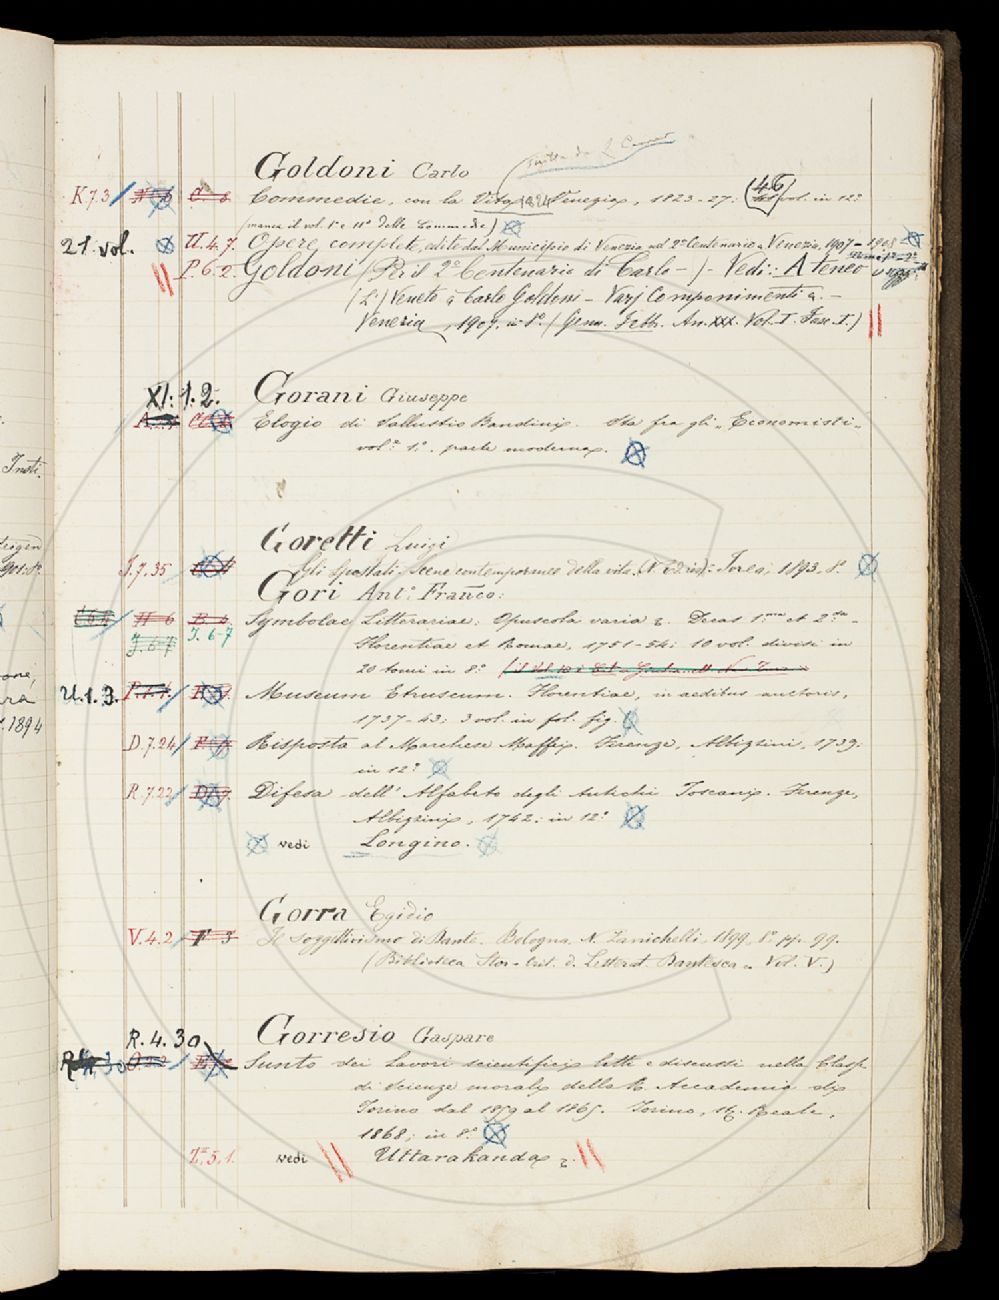 Goldoni Carlo
K.7.3 Commedie, con la Vita, 1824 Venezia, 1823-27: (46) vol. in 12º
(manca il vol. 1º e 11º delle Commedie)
21. vol. U.4.7. Opere complete, edite dal Municipio di Venezia nel 2º Centenario Venezia, 1907-1908
P.6.2. Goldoni (Nel 2º Centenario di Carlo -) - Vedi: Ateneo
(L') Veneto a Carlo Goldoni - Varj Componimenti &. -
Venezia, 1907, in 8º. (Genn. Febb. An. XXX. Vol. I. Fasc. I.)
XI.1.2. Gorani Giuseppe
Elogio di Sallustio Bandini. Sta fra gli "Economisti"
vol.º 1º. parte moderna.
Goretti Luigi
J.7.35 Gli Spostati, Scene contemporanee della vita. Ivrea, 1893, 8º
Gori Ant.º Franco:
J.6-7 J.6-7 Symbolae Litterariae: Opuscola varia &. Decas 1.ma et 2.da -
Florentiae et Romae, 1751-54: 10 vol. divisi in
20 tomi in 8º
U.1.3. Museum Etruscum. Florentiae, in aedibus auctoris,
1737-43: 3 vol. in fol. fig.
D.7.24 Risposta al Marchese Maffei. Firenze, Albizzini, 1739:
in 12º
R.7.22 Difesa dell' Alfabeto degli Antichi Toscani. Firenze,
Albizzini, 1742: in 12º
vedi Longino.
Gorra Egidio
V.4.2 Il soggettivismo di Dante. Bologna. N. Zanichelli, 1899, 8º pp. 99.
(Biblioteca Stor-Crit. d. Letterat. Dantesca. Vol. V.)
R.4.30 Gorresio Gaspare
Sunto dei Lavori scientifici letti e discussi nella Classe
di Scienze morali della R. Accademia di
Torino dal 1859 al 1865. Torino, St. Reale,
1868; in 8º
Z.5.1. vedi Uttarakanda &.
Insti.
1894